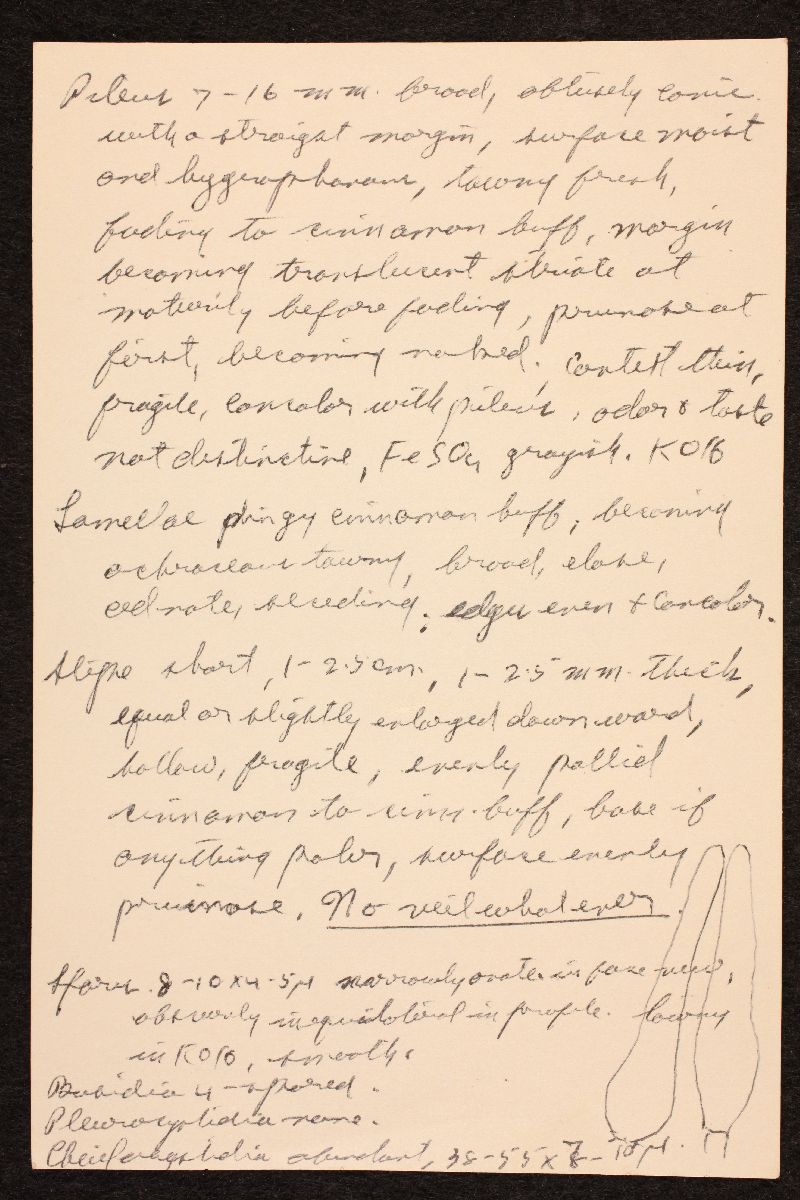 Pileus 7-16 mm. broad, obtusely conic
with a straight margin, surface moist
and hygrophanous, tawny fresh,
fading to cinnamon buff, margin
becoming translucent striate at
maturity before fading, pruinose at
first, becoming naked. Context thin,
fragile, concolor with pileus, odor & taste
not distinctive, FeSO4 grayish. KOH
Lamellae dingy cinnamon buff, becoming
ochraceous tawny, broad, close,
adnate, seceding; edges even & concolor.
Stipe short, 1-2.5 cm., 1-2.5 mm. thick,
equal or slightly enlarged downward,
hollow, fragile, evenly pallid
cinnamon to cinn. buff, base if
anything paler, surface evenly
pruinose. No veil whatever.
Spores 8-10 x 4-5μ narrowly ovate in face view,
obscurely inequilateral in profile. tawny
in KOH, smooth.
Basidia 4-spored.
Pleurocystidia none.
Cheilocystidia abundant, 38-55 x 7-10μ.